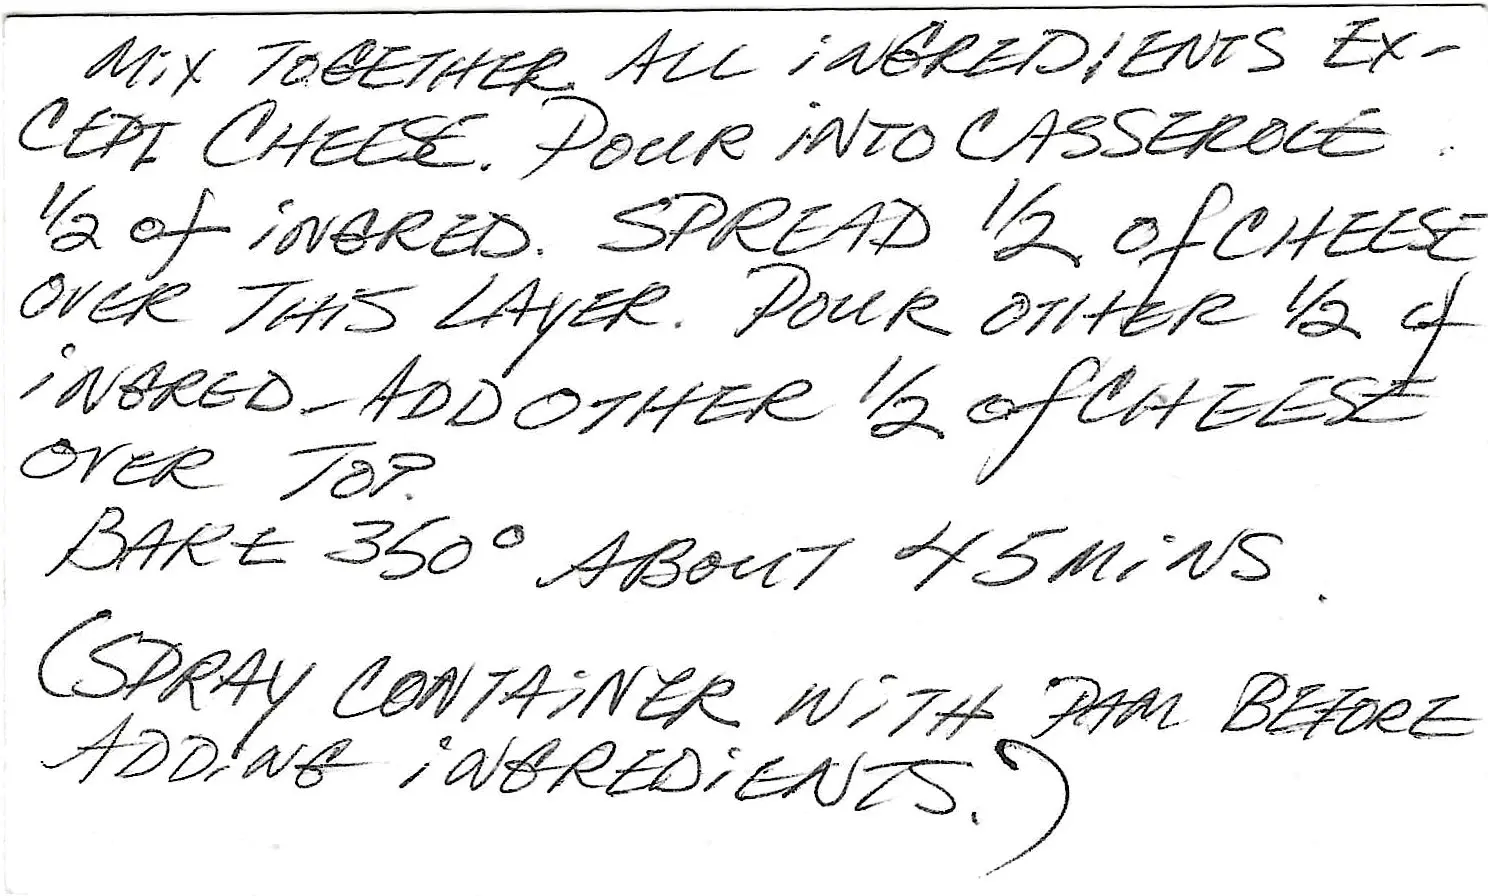 MiX TOGETHER ALL iNGREDiENTS EX-
CEPT CHEESE. POUR iNTO CASSEROLE.
1/2 of iNGRED. SPREAD 1/2 of CHEESE
OVER THiS LAyER. POUR OTHER 1/2 of
iNGRED - ADD OTHER 1/2 of CHEESE
OVER TOP.
BAKE 350° ABOUT 45 MiNS.
(SPRAY CONTAiNER WiTH PAM BEFORE
ADDiNG iNGREDiENTS.)